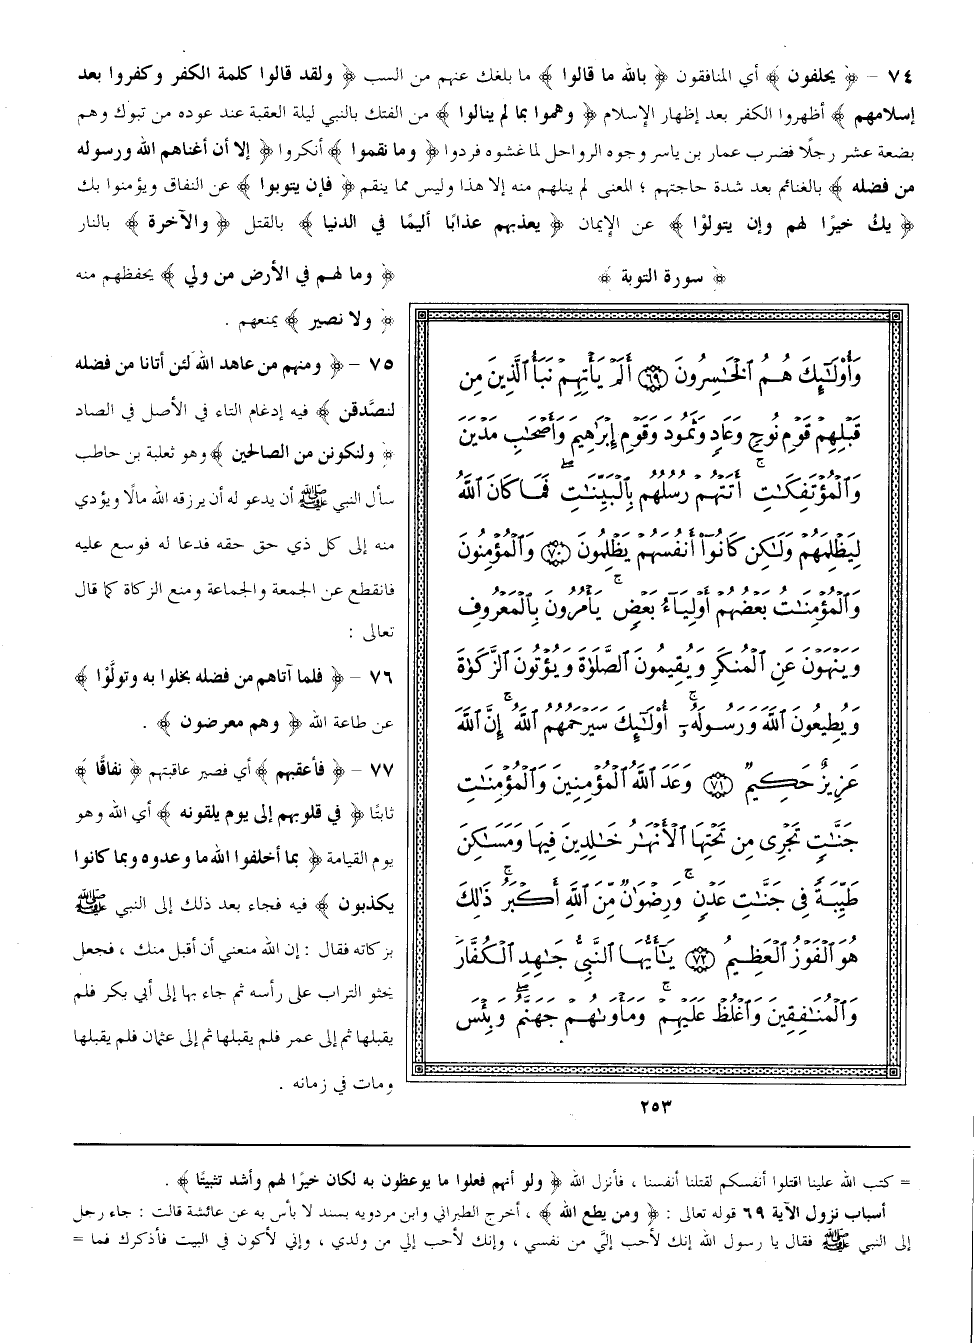 ٧٤ – ﴿ يحلفون ﴾ أي المنافقون ﴿ بالله ما قالوا ﴾ ما بلغك عنهم من السب ﴿ ولقد قالوا كلمة الكفر وكفروا بعد
إسلامهم ﴾ أظهروا الكفر بعد إظهار الإسلام ﴿ وهموا بما لم ينالوا ﴾ من الفتك بالنبي ليلة العقبة عند عوده من تبوك وهم
بضعة عشر رجلًا فضرب عمار بن ياسر وجوه الرواحل لما غشوه فردوا ﴿ وما نقموا ﴾ أنكروا ﴿ إلا أن أغناهم الله ورسوله
من فضله ﴾ بالغنائم بعد شدة حاجتهم ؛ المعنى لم ينلهم منه إلا هذا وليس مما ينقم ﴿ فإن يتوبوا ﴾ عن النفاق ويؤمنوا بك
﴿ يكُ خيرًا لهم وإن يتولوْا ﴾ عن الإيمان ﴿ يعذبهم عذابًا أليمًا في الدنيا ﴾ بالقتل ﴿ والآخرة ﴾ بالنار
﴿ وما لهم في الأرض من ولي ﴾ يحفظهم منه
﴿ ولا نصير ﴾ يمنعهم .
٧٥ – ﴿ ومنهم من عاهد الله لئن أتانا من فضله
لنصَّدقن ﴾ فيه إدغام التاء في الأصل في الصاد
﴿ ولنكونن من الصالحين ﴾ وهو ثعلبة بن حاطب
سأل النبي ﷺ أن يدعو له أن يرزقه الله مالًا ويؤدي
منه إلى كل ذي حق حقه فدعا له فوسع عليه
فانقطع عن الجمعة والجماعة ومنع الزكاة كما قال
تعالى :
٧٦ – ﴿ فلما آتاهم من فضله بخلوا به وتولَّوْا ﴾
عن طاعة الله ﴿ وهم معرضون ﴾ .
٧٧ – ﴿ فأعقبهم ﴾ أي فصير عاقبتهم ﴿ نفاقًا ﴾
ثابتًا ﴿ في قلوبهم إلى يوم يلقونه ﴾ أي الله وهو
يوم القيامة ﴿ بما أخلفوا الله ما وعدوه وبما كانوا
يكذبون ﴾ فيه فجاء بعد ذلك إلى النبي ﷺ
بزكاته فقال : إن الله منعني أن أقبل منك ، فجعل
يحثو التراب على رأسه ثم جاء بها إلى أبي بكر فلم
يقبلها ثم إلى عمر فلم يقبلها ثم إلى عثمان فلم يقبلها
ومات في زمانه .
﴿ سورة التوبة ﴾
وَأُوْلَٰٓئِكَ هُمُ ٱلْخَٰسِرُونَ ٦٩ أَلَمْ يَأْتِهِمْ نَبَأُ ٱلَّذِينَ مِن
قَبْلِهِمْ قَوْمِ نُوحٍ وَعَادٍ وَثَمُودَ وَقَوْمِ إِبْرَٰهِيمَ وَأَصْحَٰبِ مَدْيَنَ
وَٱلْمُؤْتَفِكَٰتِ ۚ أَتَتْهُمْ رُسُلُهُم بِٱلْبَيِّنَٰتِ ۖ فَمَا كَانَ ٱللَّهُ
لِيَظْلِمَهُمْ وَلَٰكِن كَانُوٓاْ أَنفُسَهُمْ يَظْلِمُونَ ٧٠ وَٱلْمُؤْمِنُونَ
وَٱلْمُؤْمِنَٰتُ بَعْضُهُمْ أَوْلِيَآءُ بَعْضٍ ۚ يَأْمُرُونَ بِٱلْمَعْرُوفِ
وَيَنْهَوْنَ عَنِ ٱلْمُنكَرِ وَيُقِيمُونَ ٱلصَّلَوٰةَ وَيُؤْتُونَ ٱلزَّكَوٰةَ
وَيُطِيعُونَ ٱللَّهَ وَرَسُولَهُۥٓ ۚ أُوْلَٰٓئِكَ سَيَرْحَمُهُمُ ٱللَّهُ ۗ إِنَّ ٱللَّهَ
عَزِيزٌ حَكِيمٌ ٧١ وَعَدَ ٱللَّهُ ٱلْمُؤْمِنِينَ وَٱلْمُؤْمِنَٰتِ
جَنَّٰتٍ تَجْرِى مِن تَحْتِهَا ٱلْأَنْهَٰرُ خَٰلِدِينَ فِيهَا وَمَسَٰكِنَ
طَيِّبَةً فِى جَنَّٰتِ عَدْنٍ ۚ وَرِضْوَٰنٌ مِّنَ ٱللَّهِ أَكْبَرُ ۚ ذَٰلِكَ
هُوَ ٱلْفَوْزُ ٱلْعَظِيمُ ٧٢ يَٰٓأَيُّهَا ٱلنَّبِىُّ جَٰهِدِ ٱلْكُفَّارَ
وَٱلْمُنَٰفِقِينَ وَٱغْلُظْ عَلَيْهِمْ ۚ وَمَأْوَىٰهُمْ جَهَنَّمُ ۖ وَبِئْسَ
٢٥٣
= كتب الله علينا اقتلوا أنفسكم لقتلنا أنفسنا ، فأنزل الله ﴿ ولو أنهم فعلوا ما يوعظون به لكان خيرًا لهم وأشد تثبيتًا ﴾ .
أسباب نزول الآية ٦٩ قوله تعالى : ﴿ ومن يطع الله ﴾ ، أخرج الطبراني وابن مردويه بسند لا بأس به عن عائشة قالت : جاء رجل
إلى النبي ﷺ فقال يا رسول الله إنك لأحب إليَّ من نفسي ، وإنك لأحب إلي من ولدي ، وإني لأكون في البيت فأذكرك فما =